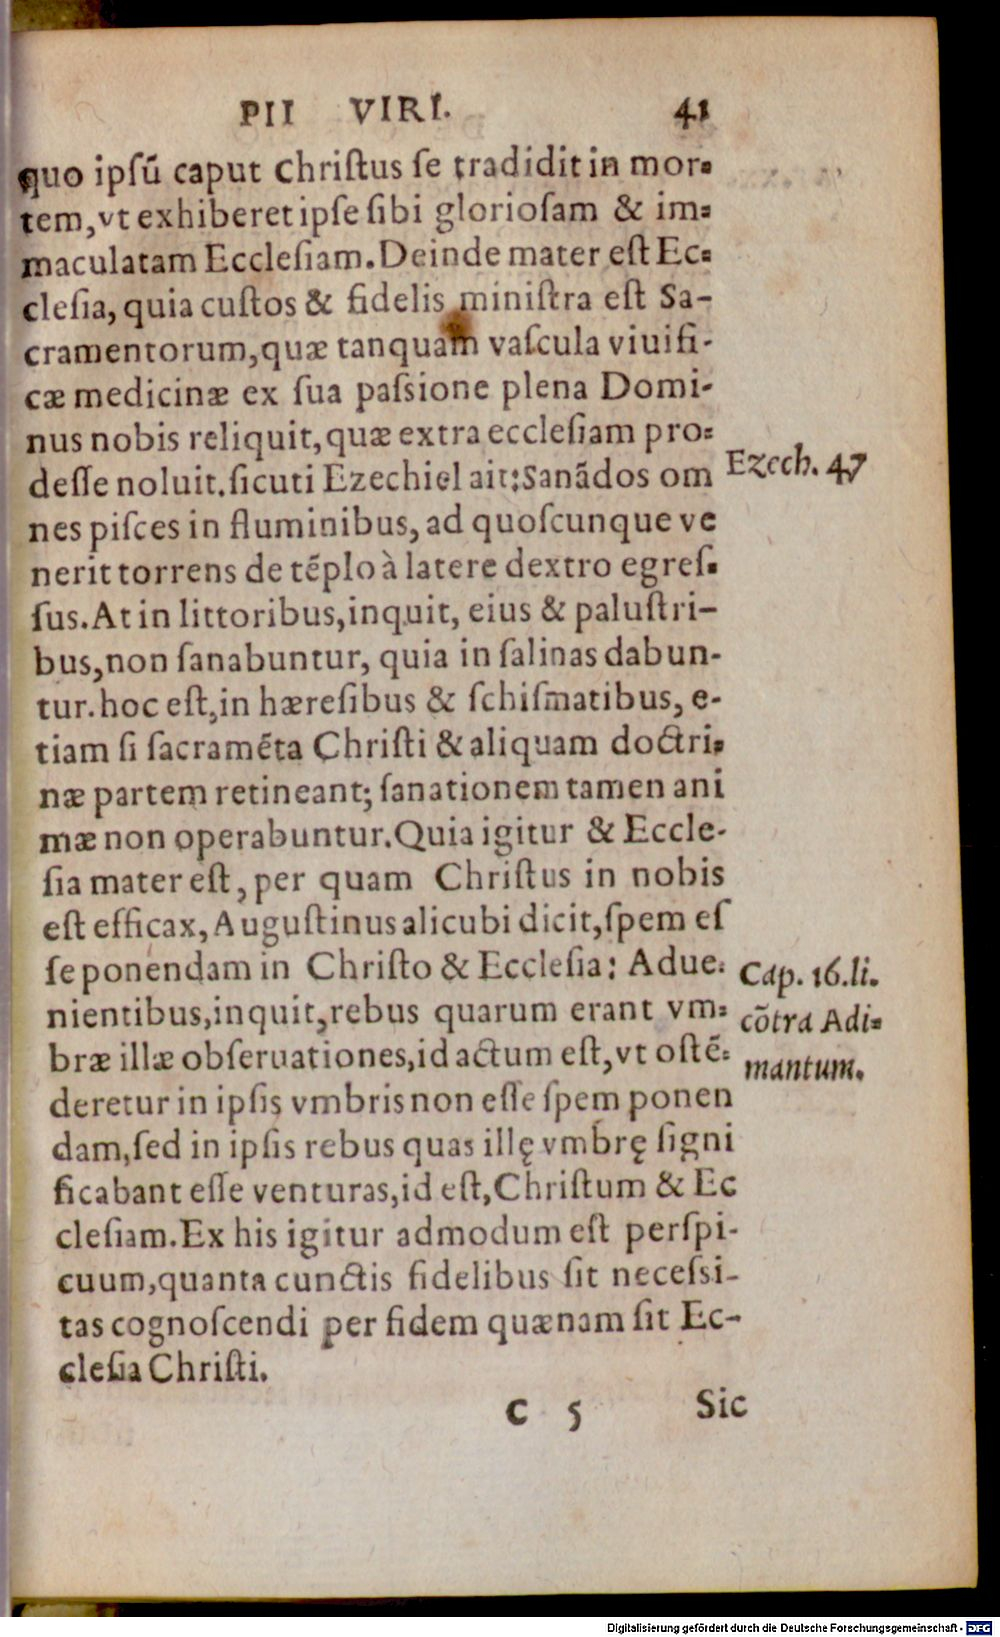 PII VIRI. 41
quo ipsū caput Christus se tradidit in mor=
tem, vt exhiberet ipse sibi gloriosam & im=
maculatam Ecclesiam. Deinde mater est Ec=
clesia, quia custos & fidelis ministra est Sa-
cramentorum, quæ tanquam vascula viuifi-
cæ medicinæ ex sua passione plena Domi-
nus nobis reliquit, quæ extra ecclesiam pro=
desse noluit. sicuti Ezechiel ait: Sanãdos om
Ezech. 47
nes pisces in fluminibus, ad quoscunque ve
nerit torrens de tẽplo à latere dextro egres=
sus. At in littoribus, inquit, eius & palustri-
bus, non sanabuntur, quia in salinas dabun-
tur. hoc est, in hæresibus & schismatibus, e-
tiam si sacramẽta Christi & aliquam doctri=
næ partem retineant; sanationem tamen ani
mæ non operabuntur. Quia igitur & Eccle-
sia mater est, per quam Christus in nobis
est efficax, Augustinus alicubi dicit, spem es
se ponendam in Christo & Ecclesia: Adue=
nientibus, inquit, rebus quarum erant vm=
bræ illæ obseruationes, id actum est, vt ostẽ=
Cap. 16. li.
cõtra Adi=
mantum.
deretur in ipsis vmbris non esse spem ponen
dam, sed in ipsis rebus quas illę vmbrę signi
ficabant esse venturas, id est, Christum & Ec
clesiam. Ex his igitur admodum est perspi-
cuum, quanta cunctis fidelibus sit necessi-
tas cognoscendi per fidem quænam sit Ec-
clesia Christi.
C 5 Sic
Digitalisierung gefördert durch die Deutsche Forschungsgemeinschaft - DFG